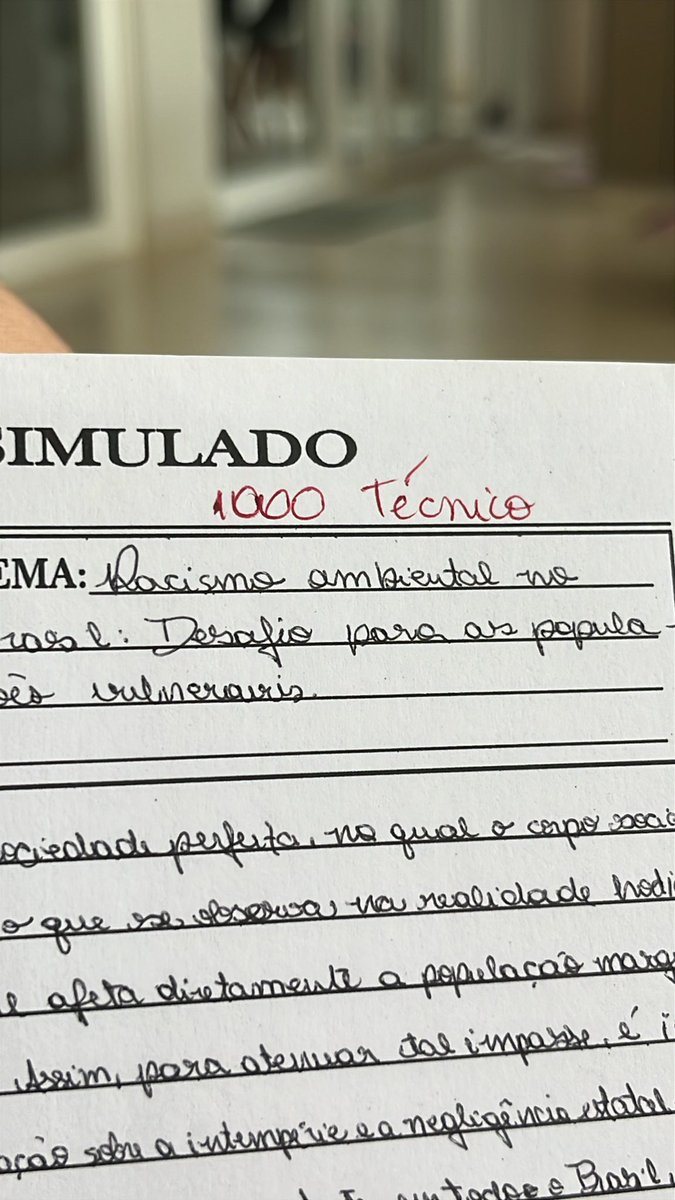 SIMULADO
1000 Técnico
EMA: Racismo ambiental no
rasil: Desafio para as popula-
ões vulneraveis.
sociedade perfeita, no qual o corpo soci
o que se observa na realidade hodi
e afeta diretamente a população marg
Assim, para atenuar tal impasse, é i
ação sobre a intempérie e a negligência estatal
todos o Brasil,